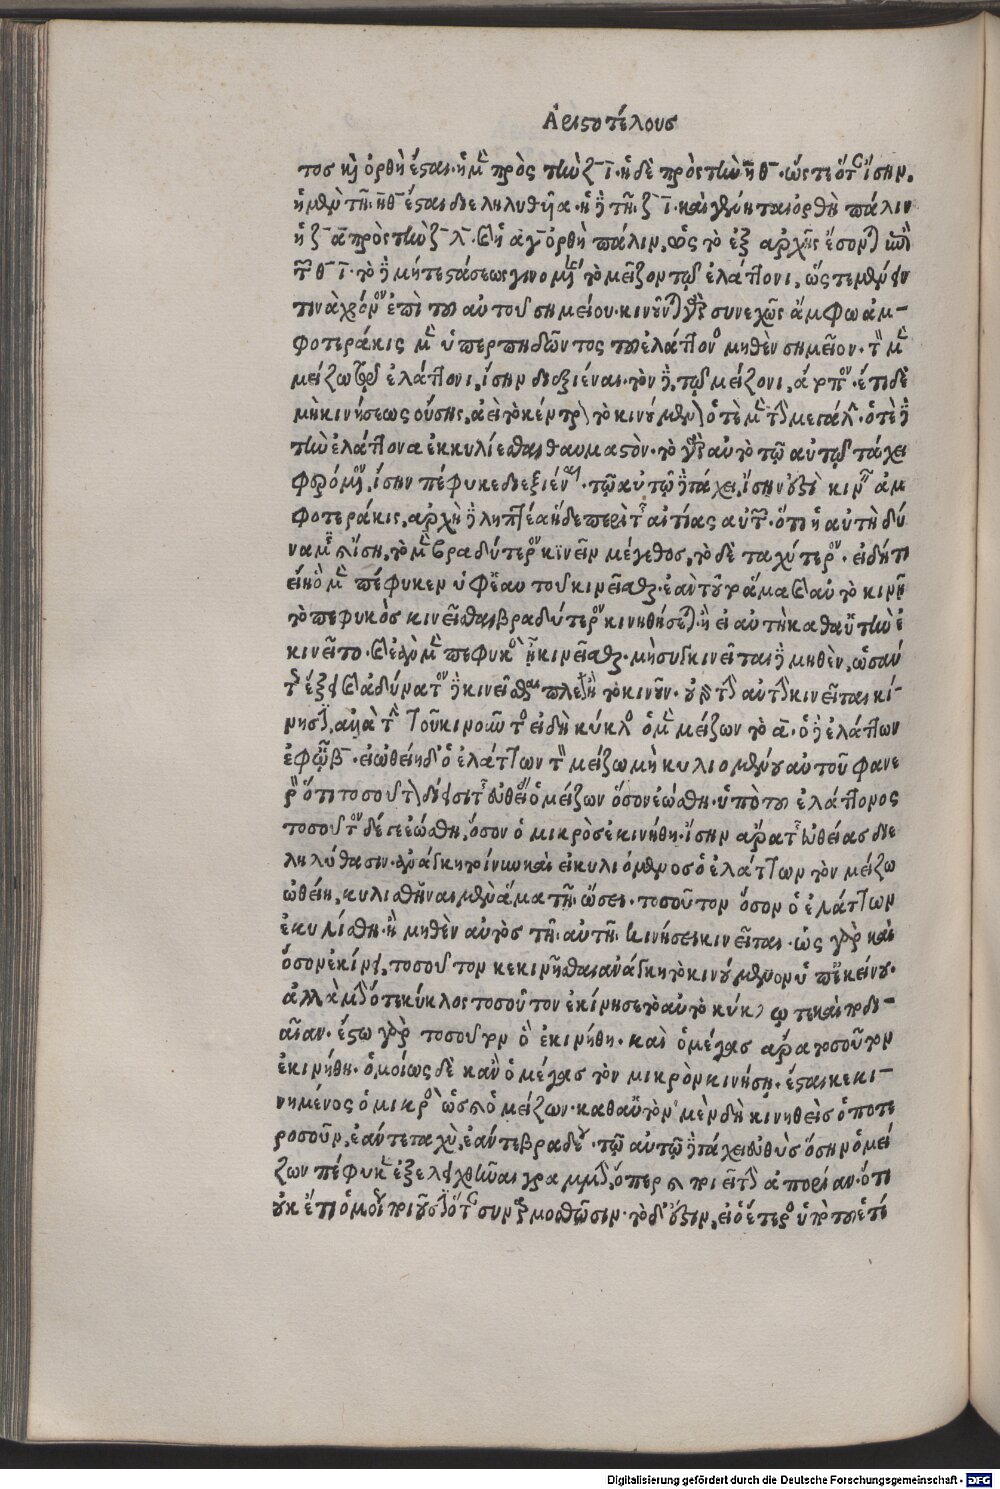 Ἀριστοτέλους
τος καὶ ὀρθὴ ἔσται. ἡ μὲν πρὸς τὴν ζ̄ ῑ. ἡ δὲ πρὸς τὴν η̄ θ̄. ὥστε ὅτ᾽ ἴσην.
ἡ μὲν τῆς η̄ θ̄ ἔσται διεληλυθῆα. ἡ δὲ τῆς ζ̄ ῑ. καὶ γὰρ ὀρθὴ πάλιν
ἡ ζ̄ ᾱ πρὸς τὴν ζ̄ λ̄. καὶ ἡ ᾱ γ̄ ὀρθὴ πάλιν, ὡς τὸ ἐξ ἀρχῆς ἔσονται
τῇ θ̄ ῑ. τὸ δὲ μήτε στάσεως γινομένης τὸ μεῖζον τῷ ἐλάττονι, ὥστε μένειν
τινὰ χρόνον ἐπὶ τοῦ αὐτοῦ σημείου. κινοῦνται γὰρ συνεχῶς ἄμφω ἀμ-
φοτεράκις μὴ ὑπερπηδῶντος τοῦ ἐλάττονος μηθὲν σημεῖον. τὴν μὲν
μείζω τῷ ἐλάττονι, ἴσην διεξιέναι. τὸν δὲ, τῷ μείζονι, ἄτοπον. ἔτι δὲ
μὴ κινήσεως οὔσης, ἀεὶ τὸ κέντρον τὸ κινούμενον ὁτὲ μὲν τὴν μεγάλην. ὁτὲ δὲ
τὴν ἐλάττονα ἐκκυλίεσθαι θαυμαστόν. τὸ γὰρ αὐτὸ τῷ αὐτῷ τάχει
φερόμενον, ἴσην πέφυκε διεξιέναι. τῷ αὐτῷ δὲ τάχει, ἴσην ἔστι κινεῖν ἀμ
φοτεράκις, ἀρχὴ δὲ ληπτέα ἥδε περὶ τῆς αἰτίας αὐτῶν. ὅτι ἡ αὐτὴ δύ
ναμις καὶ ἴση, τὸ μὲν βραδύτερον κινεῖν μέγεθος, τὸ δὲ ταχύτερον. εἰ δή τι
εἴη ὃ μὲν πέφυκεν ὑφ᾽ ἑαυτοῦ κινεῖσθαι. ἐὰν τοῦτο ἅμα καὶ αὐτὸ κινῇ
τὸ πεφυκὸς κινεῖσθαι βραδύτερον κινηθήσεται. ἢ εἰ αὐτὴ καθαὑτὴν ἐ
κινεῖτο. καὶ ἐὰν μὲν πεφυκὸς ᾖ κινεῖσθαι. μὴ συγκινεῖται δὲ μηθὲν, ὡσαύ
τως ἕξει καὶ ἀδύνατον δὲ κινεῖσθαι πλέον ἢ τὸ κινοῦν. οὐ γὰρ τὴν αὐτὴν κινεῖται κί-
νησιν, ἀλλὰ τὴν τοῦ κινοῦντος εἰ δὴ κύκλος ὁ μὲν μείζων τὸ ᾱ. ὁ δὲ ἐλάττων
ἐφ᾽ ᾧ β̄. εἰ ὠθείη δ᾽ ὁ ἐλάττων τὸν μείζω μὴ κυλιομένου αὐτοῦ φανε
ρὸν ὅτι τοσοῦτον δίεισι τῆς εὐθείας ὁ μείζων ὅσον ἐώσθη. ὑπὸ τοῦ ἐλάττονος
τοσοῦτον δέ γε ἐώσθη, ὅσον ὁ μικρὸς ἐκινήθη. ἴσην ἄρα τῆς εὐθείας διε
ληλύθασιν. ἀνάγκη τοίνυν καὶ εἰ κυλιόμενος ὁ ἐλάττων τὸν μείζω
ὠθείη, κυλισθῆναι μὲν ἅμα τῇ ὤσει. τοσοῦτον ὅσον ὁ ἐλάττων
ἐκυλίσθη. εἰ μηθὲν αὐτὸς τῇ αὐτῇ κινήσει κινεῖται. ὡς γὰρ καὶ
ὅσον ἐκίνει, τοσοῦτον κεκινῆσθαι ἀνάγκη τὸ κινούμενον ὑπ᾽ ἐκείνου.
ἀλλὰ μὴν ὅτε κύκλος τοσοῦτον ἐκίνησε τὸ αὐτὸ κύκλῳ τε καὶ ποδι-
αῖαν. ἔστω γὰρ τοσοῦτον ὃ ἐκινήθη. καὶ ὁ μέγας ἄρα τοσοῦτον
ἐκινήθη. ὁμοίως δὲ κἂν ὁ μέγας τὸν μικρὸν κινήσῃ. ἔσται κεκι-
νημένος ὁ μικρὸς ὡς καὶ ὁ μείζων. καθαὑτὸν μὲν δὴ κινηθεὶς ὁποτε
ροσοῦν, ἐάν τε ταχὺ, ἐάν τε βραδέως. τῷ αὐτῷ δὲ τάχει εὐθὺς ὅσην ὁ μεί
ζων πέφυκεν ἐξελιχθῆναι γραμμὴν, ὅπερ καὶ ποιεῖ τὴν ἀπορίαν. ὅτι
οὐκ ἔτι ὁμοίως ποιοῦσιν ὅταν συναρμοσθῶσιν. τὸ δ᾽ ἔστιν, εἰ ὁ ἕτερος ὑπὸ τοῦ ἑτέ
Digitalisierung gefördert durch die Deutsche Forschungsgemeinschaft - DFG